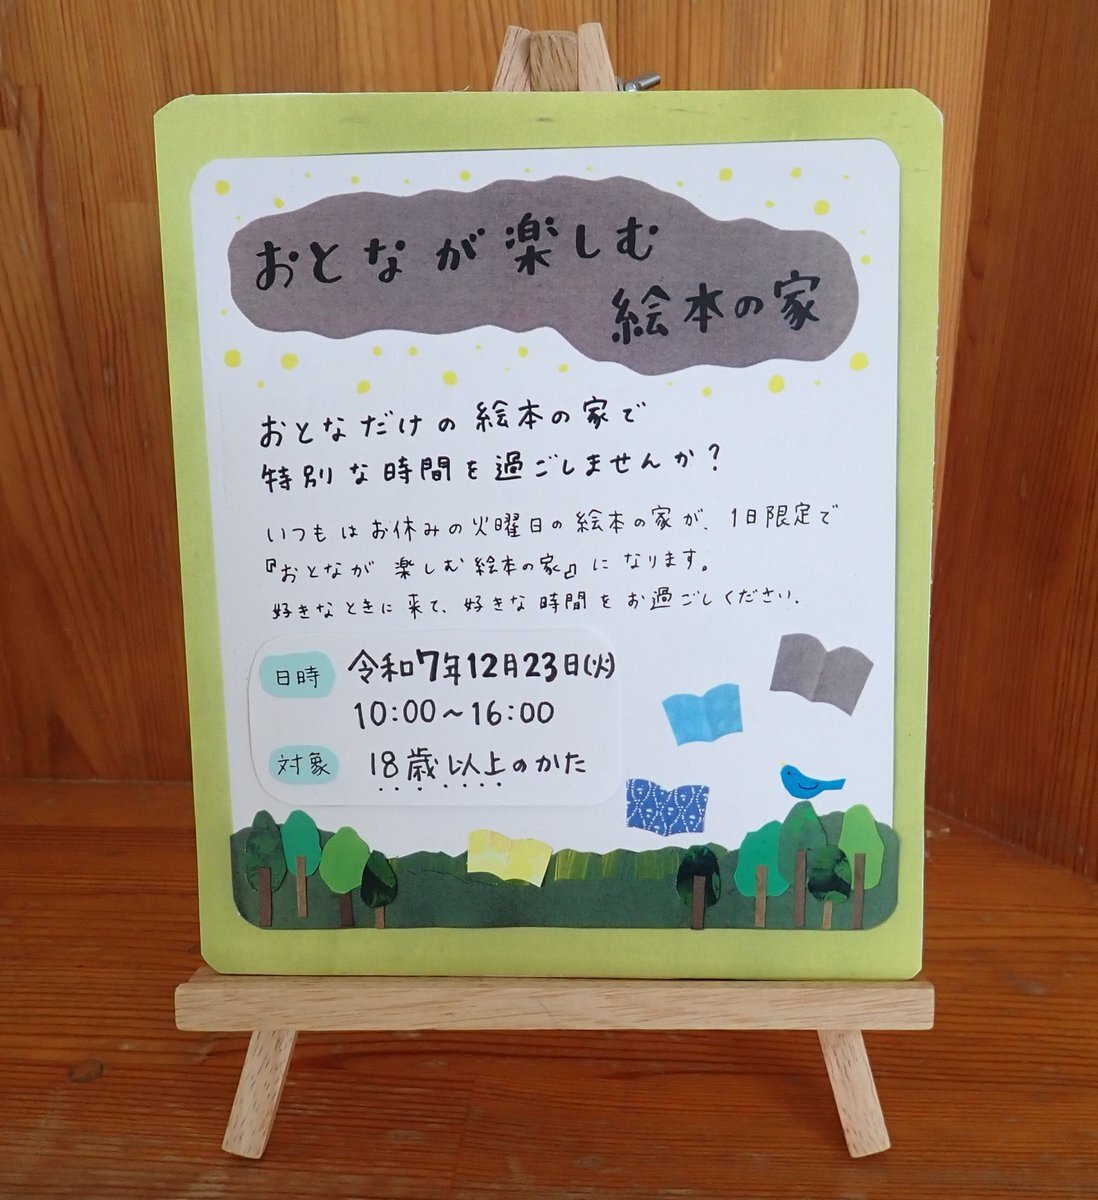 おとなが楽しむ
絵本の家
おとなだけの絵本の家で
特別な時間を過ごしませんか？
いつもはお休みの火曜日の絵本の家が、1日限定で
『おとなが楽しむ絵本の家』になります。
好きなときに来て、好きな時間をお過ごしください。
日時 令和7年12月23日(火)
10:00～16:00
対象 18歳以上のかた